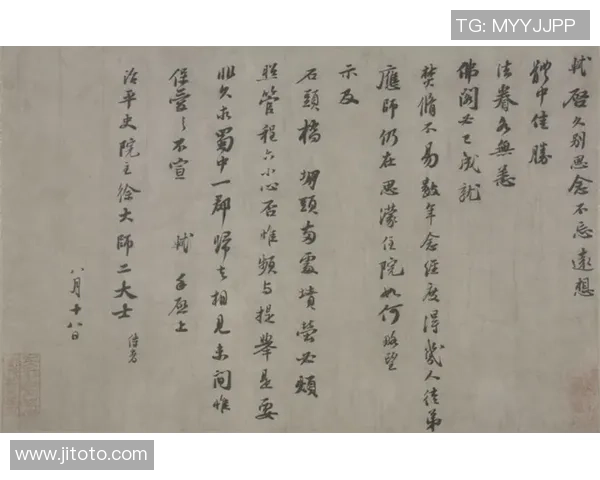 TG: MYYJJPP
軾啓久別思念不忘遠想
體中佳勝
法眷各無恙
佛閣必已成就
焚脩不易數年念經度得幾人徒弟
應師仍在思濛住院如何略望
示及
石頭橋 堋頭兩處墳塋必煩
照管程六小心否惟頻與提舉是要
非久求蜀中一郡歸去相見未間惟
保愛之不宣 軾手啓上
治平史院主徐大師二大士 侍者
八月十八日
网址: www.jitoto.com